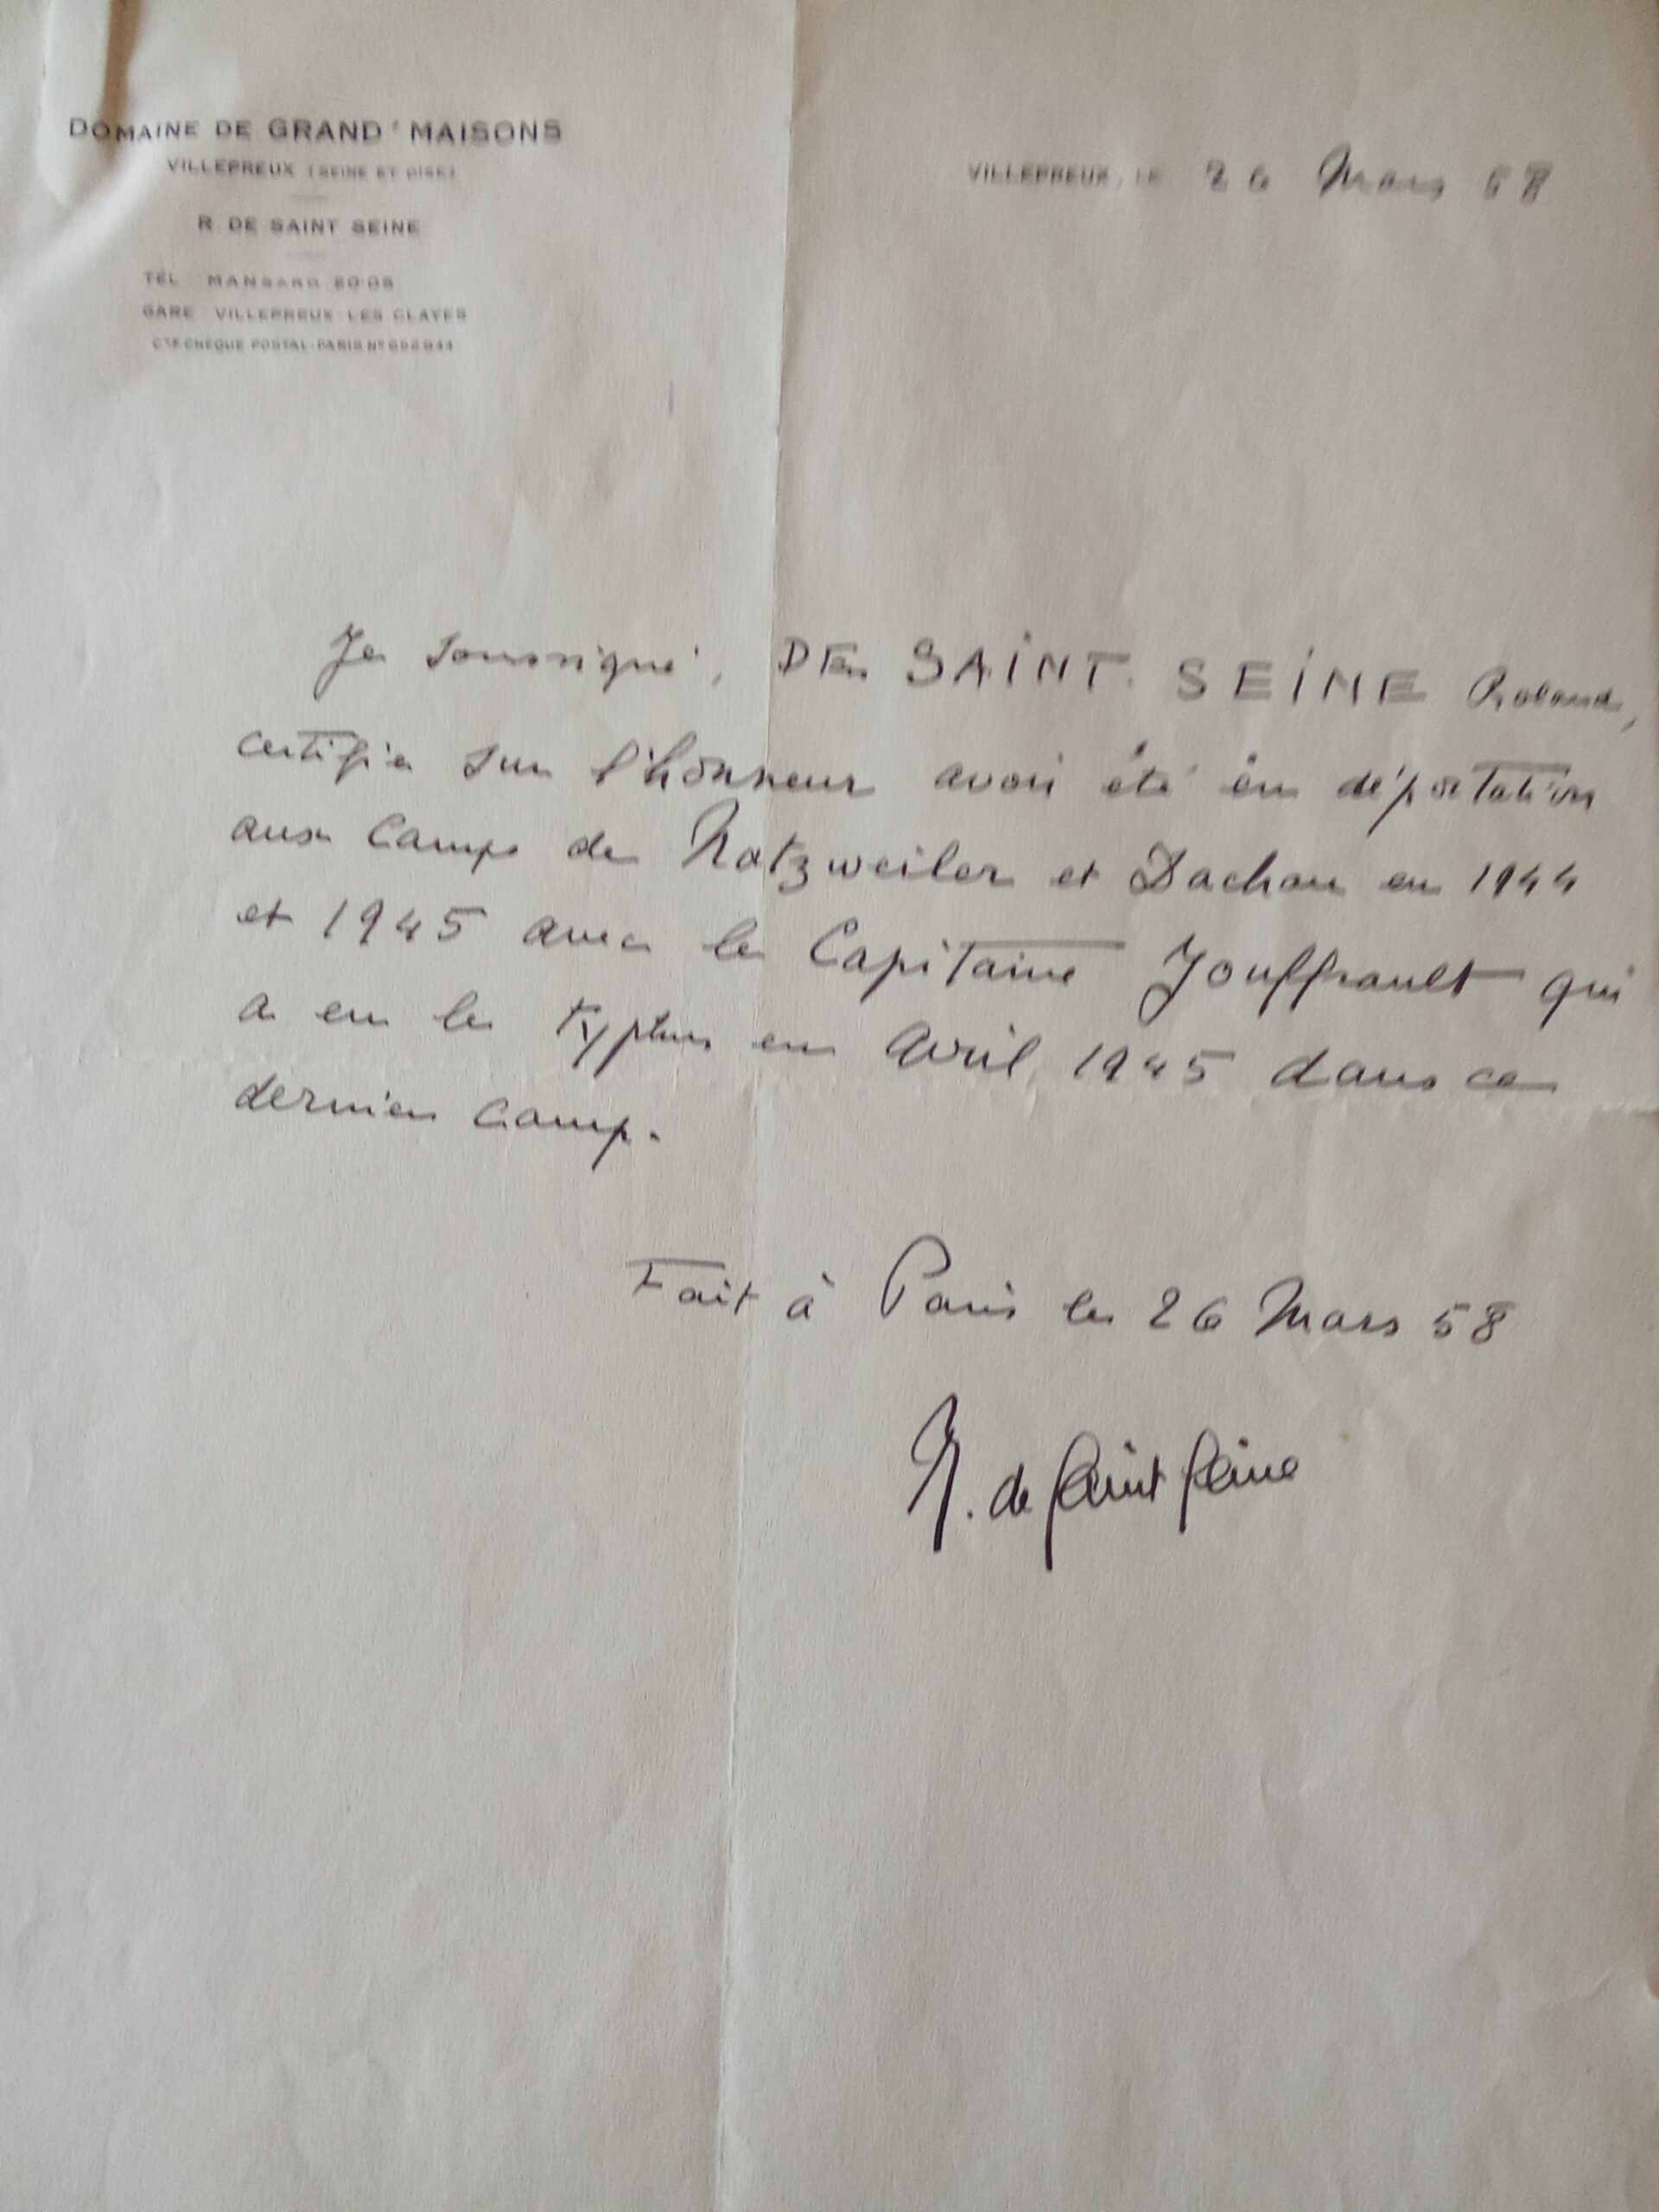 DOMAINE DE GRAND' MAISONS
VILLEPREUX (SEINE ET OISE)
R. DE SAINT SEINE
TÉL MANSARD
GARE VILLEPREUX LES CLAYES
CTE CHÈQUE POSTAL PARIS Nº
VILLEPREUX, LE 26 Mars 58
Je soussigné, DE SAINT SEINE Roland,
certifie sur l'honneur avoir été en déportation
aux Camps de Natzweiler et Dachau en 1944
et 1945 avec le Capitaine Jouffrault qui
a eu le typhus en Avril 1945 dans ce
dernier camp.
Fait à Paris le 26 Mars 58
R. de Saint Seine